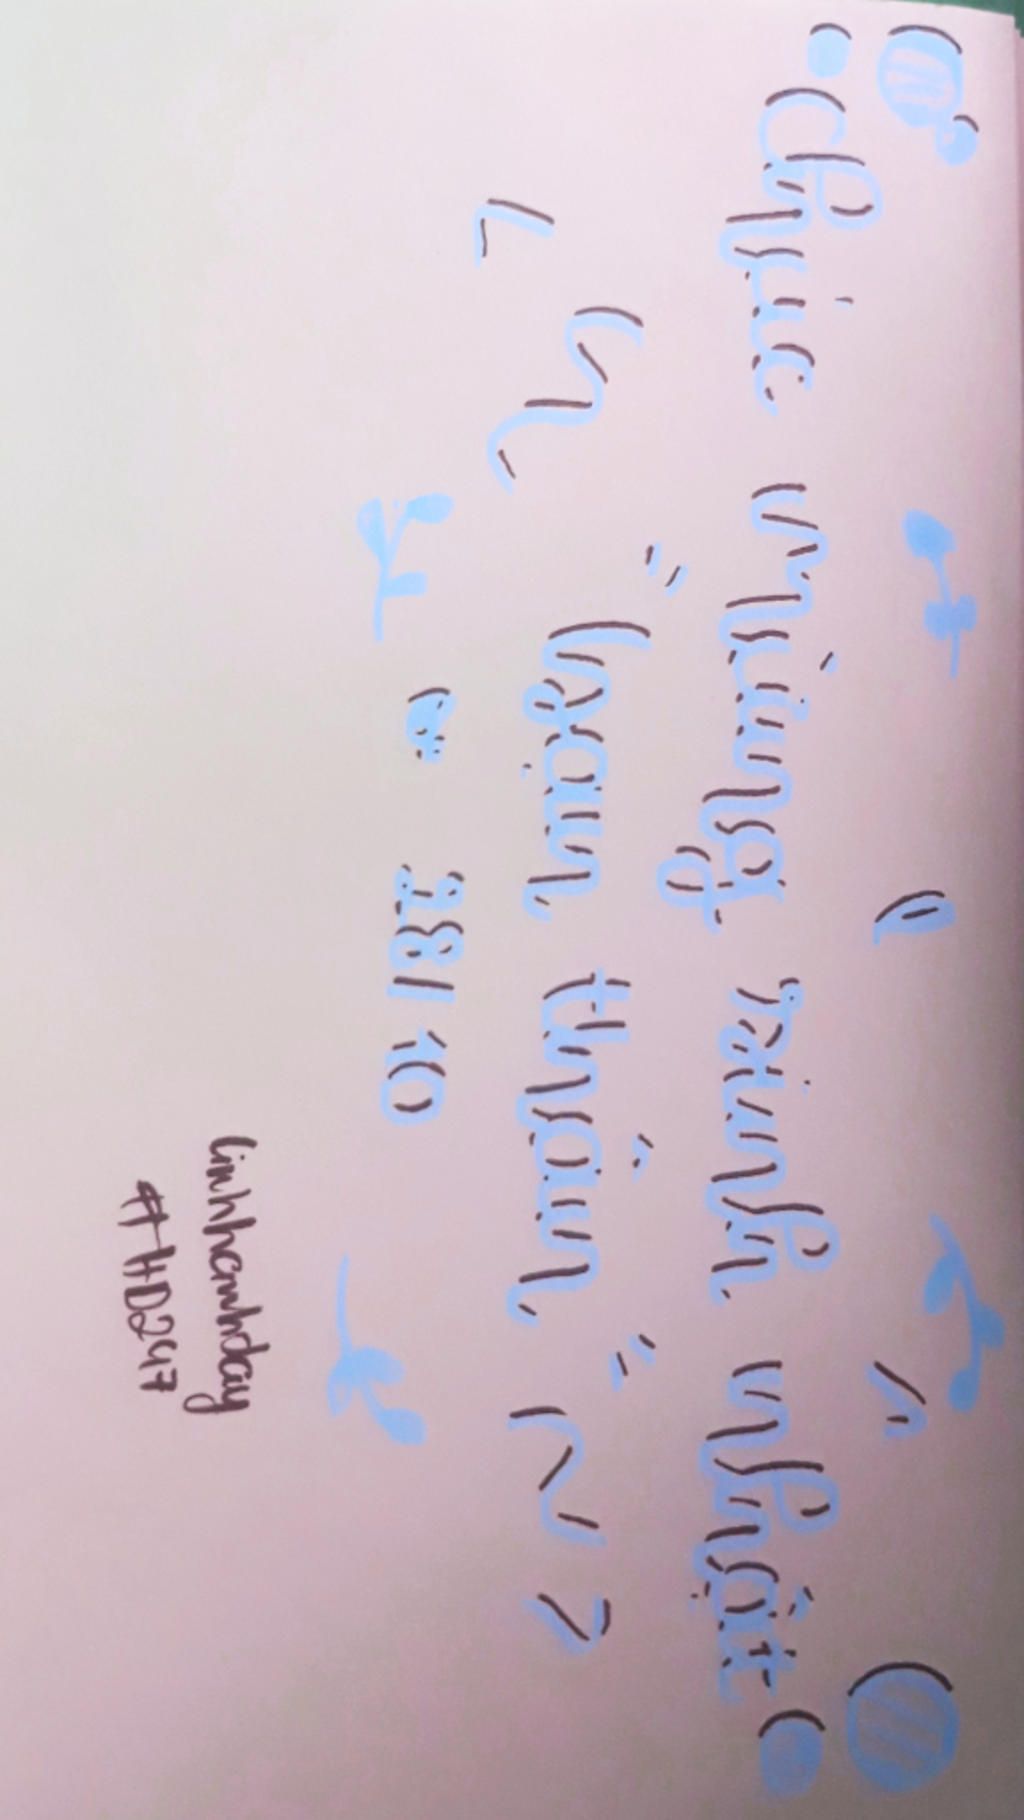 Chúc mừng sinh nhật
"bạn thân"
28/10
linhhanhday
#HD247